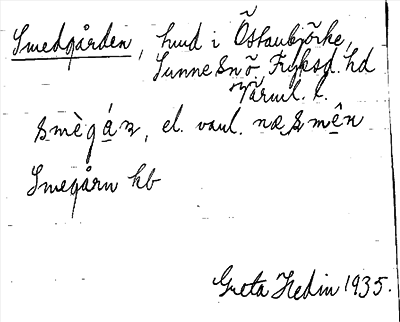 Smedgården, hmd i Östanbjörke,
Sunne sn ö Fryksd. hd
Värml. l.
smὲgá̱n, el. vanl. næ smên
Smegårn kb
Greta Hedin 1935.